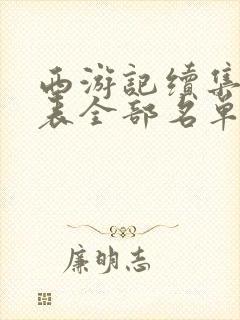 西游記續集
表全部名單
廉明志